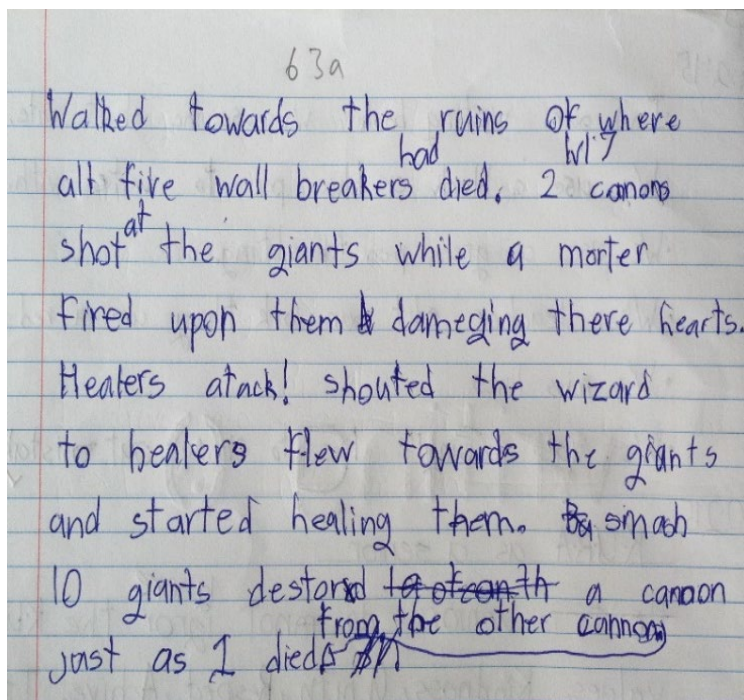 63a
Walked towards the ruins of where
had lvl 7
all five wall breakers died. 2 canons
at
shot the giants while a morter
fired upon them dameging there hearts.
Healers atack! shouted the wizard
to healers flew towards the giants
and started healing them. smash
10 giants destord a canoon
from the other cannon
just as 1 died